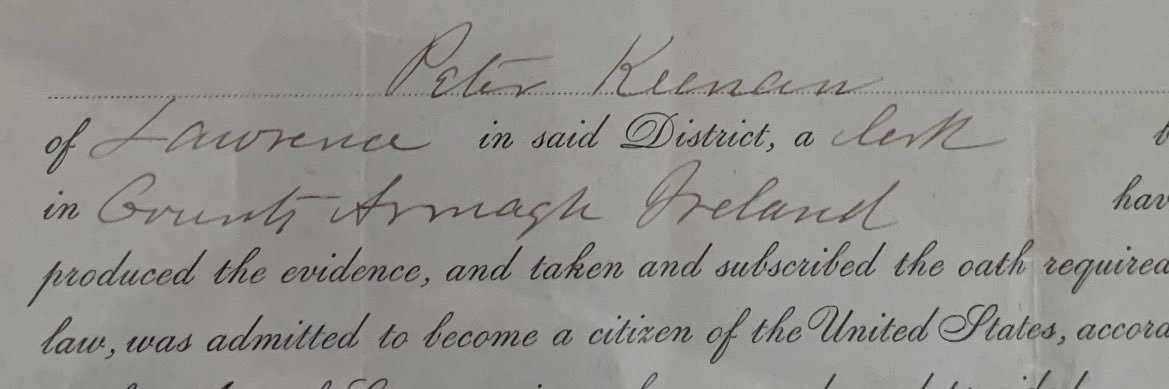 Peter Keenan
of Lawrence in said District, a clerk b
in County Armagh Ireland hav
produced the evidence, and taken and subscribed the oath required
law, was admitted to become a citizen of the United States, accord